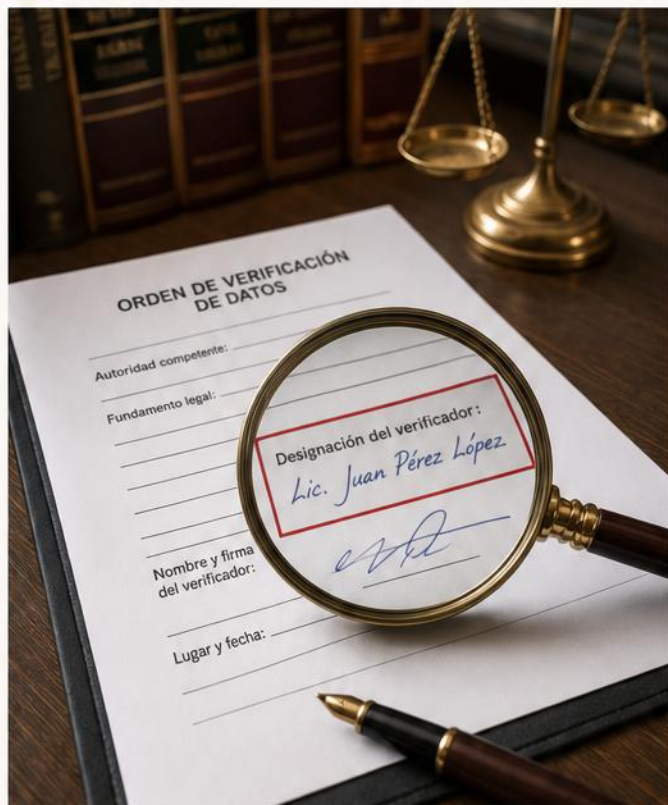 ORDEN DE VERIFICACIÓN
DE DATOS
Autoridad competente:
Fundamento legal:
Designación del verificador:
Lic. Juan Pérez López
Nombre y firma
del verificador:
Lugar y fecha: